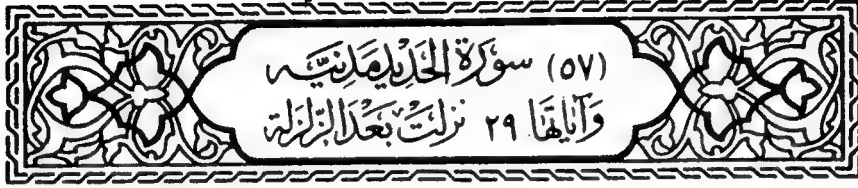 (٥٧) سورة الحديد مدنية
وآياتها ٢٩ نزلت بعد الزلزلة